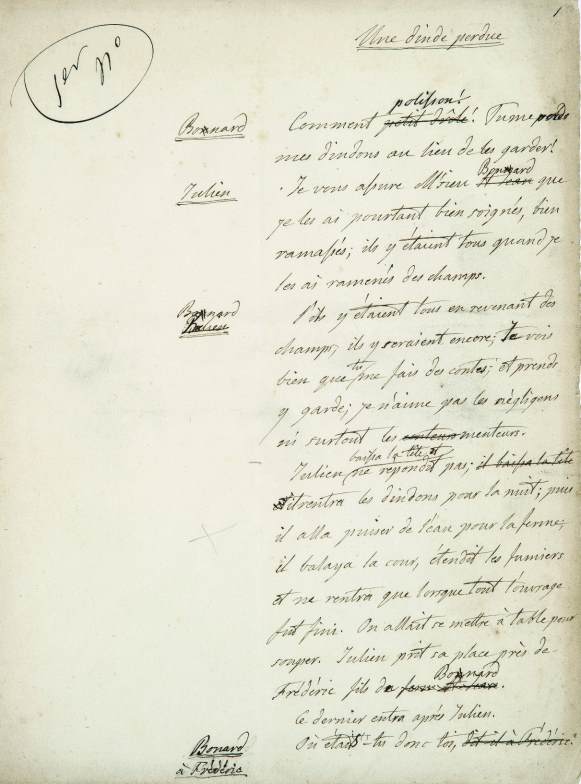 1
Une dinde perdue
1er no
polisson!
Bonnard Comment petit drôle! Tu me perds
mes dindons au lieu de les garder!
Bonnard
Julien Je vous assure M'sieu St Jean que
je les ai pourtant bien soignés, bien
ramassés; ils y étaient tous quand je
les ai ramenés des champs.
Bonnard S'ils y étaient tous en revenant des
Julien
champs, ils y seraient encore; Je vois
bien que tu me fais des contes; et prends
y garde; je n'aime pas les négligens
ni surtout les conteurs menteurs.
baissa la tête et
Julien ne répondit pas; il baissa la tête
et rentra les dindons pour la nuit; puis
il alla puiser de l'eau pour la ferme;
il balaya la cour, étendit les fumiers
et ne rentra que lorsque tout l'ouvrage
fut fini. On allait se mettre à table pour
souper. Julien prit sa place près de
Bonnard
Frédéric fils de
Ce dernier entra après Julien.
Bonard Où étais tu donc toi, dit il à Frédéric.
à Frédéric